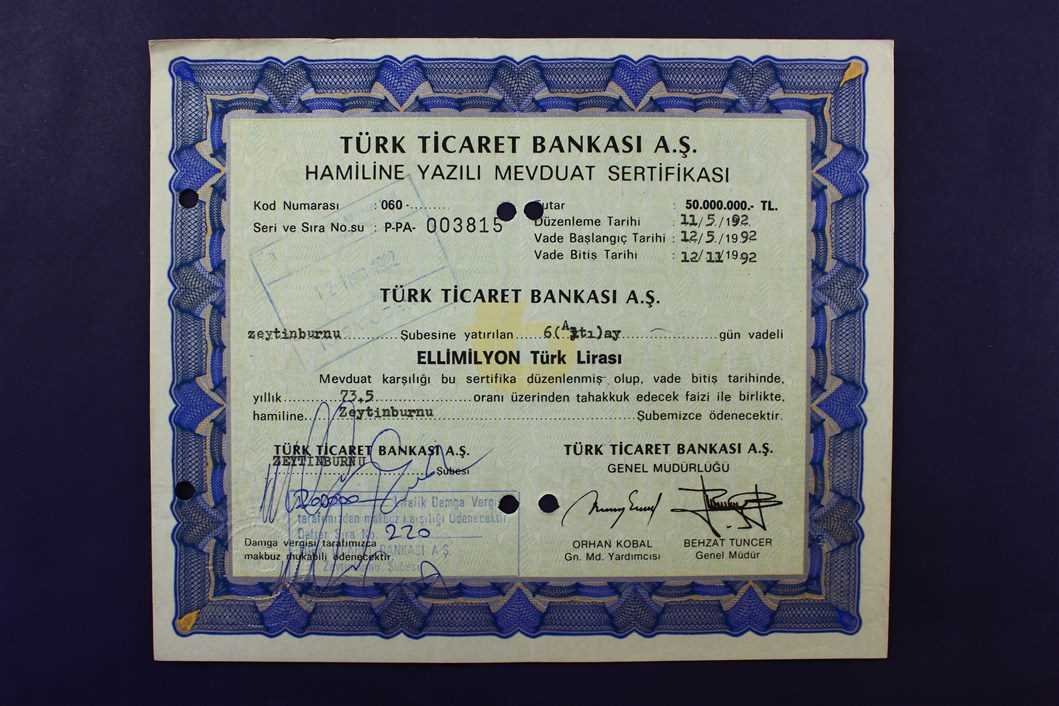 TÜRK TİCARET BANKASI A.Ş.
HAMİLİNE YAZILI MEVDUAT SERTİFİKASI
Kod Numarası : 060 -.........
Seri ve Sıra No.su : P-PA- 003815
utar : 50.000.000.- TL.
Düzenleme Tarihi : 11/5/192.
Vade Başlangıç Tarihi : 12/5/1992
Vade Bitiş Tarihi : 12/11/1992
TÜRK TİCARET BANKASI A.Ş.
zeytinburnu............Şubesine yatırılan.....6(Altı)ay....................gün vadeli
ELLİMİLYON Türk Lirası
Mevduat karşılığı bu sertifika düzenlenmiş olup, vade bitiş tarihinde,
yıllık............73.5....................oranı üzerinden tahakkuk edecek faizi ile birlikte,
hamiline......Zeytinburnu............................................Şubemizce ödenecektir.
TÜRK TİCARET BANKASI A.Ş.
ZEYTINBURNU..................Şubesi
TÜRK TİCARET BANKASI A.Ş.
GENEL MÜDÜRLÜĞÜ
Liralik Damga Vergisi
tarafımızdan makbuz karşılığı ödenecektir
Defter Sıra No. 220
BANKASI A.Ş.
Zeytinburnu Şubesi
Damga vergisi tarafımızca
makbuz mukabili ödenecektir.
ORHAN KOBAL
Gn. Md. Yardımcısı
BEHZAT TUNCER
Genel Müdür